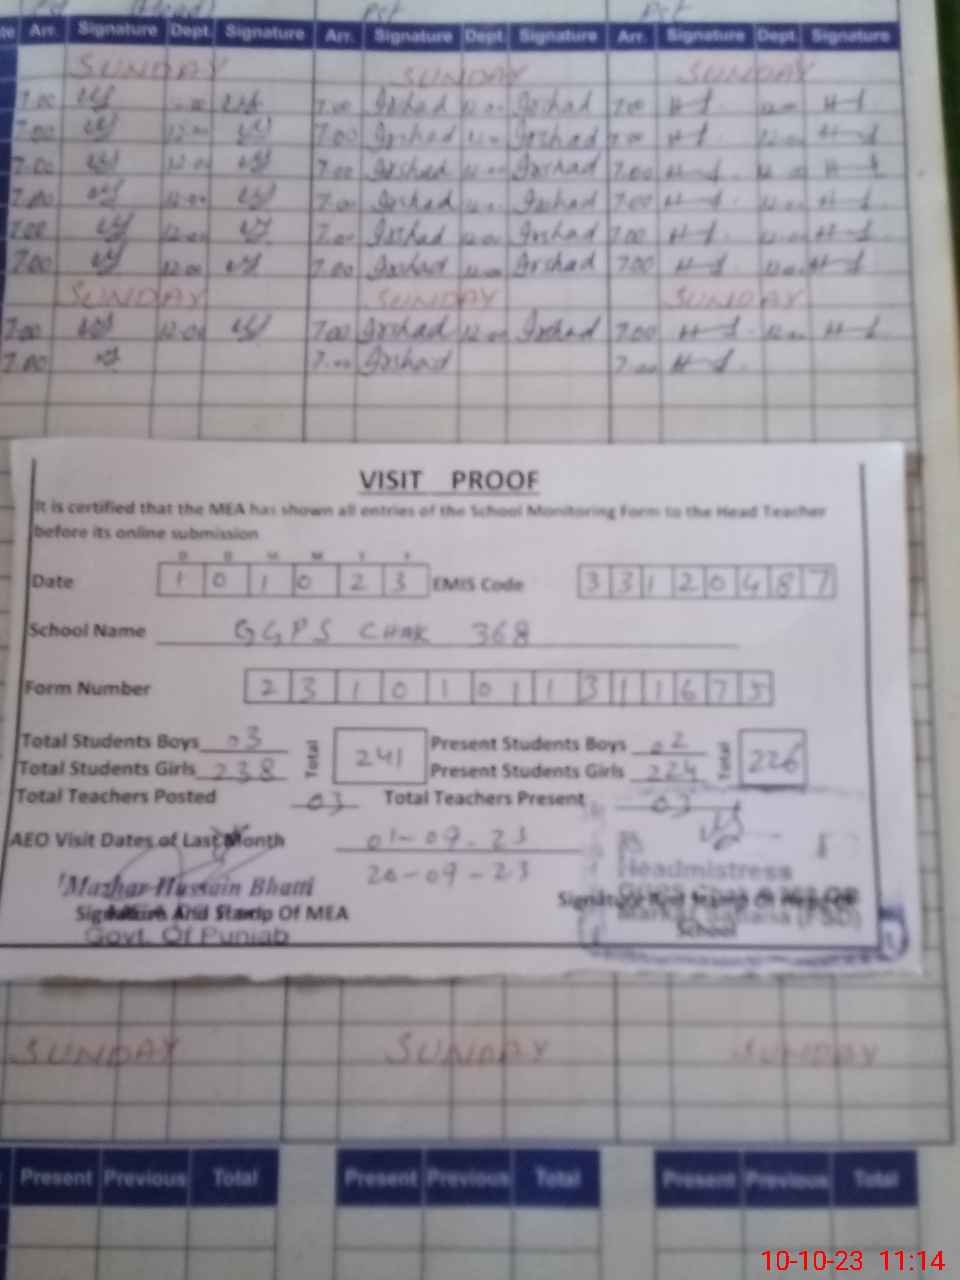 Arr. Signature Dept. Signature Arr. Signature Dept. Signature Arr. Signature Dept. Signature
SUNDAY SUNDAY SUNDAY
7.00 7.00 Irshad 12.00 Irshad 7.00 12.00
7.00 12.00 7.00 Irshad 12.00 Irshad 7.00 12.00
7.00 12.00 7.00 Irshad 12.00 Irshad 7.00 12.00
7.00 12.00 7.00 Irshad 12.00 Irshad 7.00 12.00
7.00 12.00 7.00 Irshad 12.00 Irshad 7.00 12.00
7.00 12.00 7.00 Irshad 12.00 Irshad 7.00 12.00
SUNDAY SUNDAY SUNDAY
7.00 12.00 7.00 Irshad 12.00 Irshad 7.00 12.00
7.00 7.00 Irshad 7.00
VISIT PROOF
It is certified that the MEA has shown all entries of the School Monitoring Form to the Head Teacher
before its online submission
D D M M Y Y
Date 1 0 1 0 2 3 EMIS Code 3 3 1 2 0 4 8 7
School Name GGPS CHAK 368
Form Number 2 3 1 0 1 0 1 1 3 1 1 6 7 5
Total Students Boys 03 Total 241 Present Students Boys 02 Total 226
Total Students Girls 238 Present Students Girls 224
Total Teachers Posted 03 Total Teachers Present 03
AEO Visit Dates of Last Month 01-09-23
20-09-23
Headmistress
Mazhar Hussain Bhatti
Signature And Stamp Of MEA
Govt. Of Punjab
School
SUNDAY SUNDAY SUNDAY
Present Previous Total Present Previous Total Present Previous Total
10-10-23 11:14